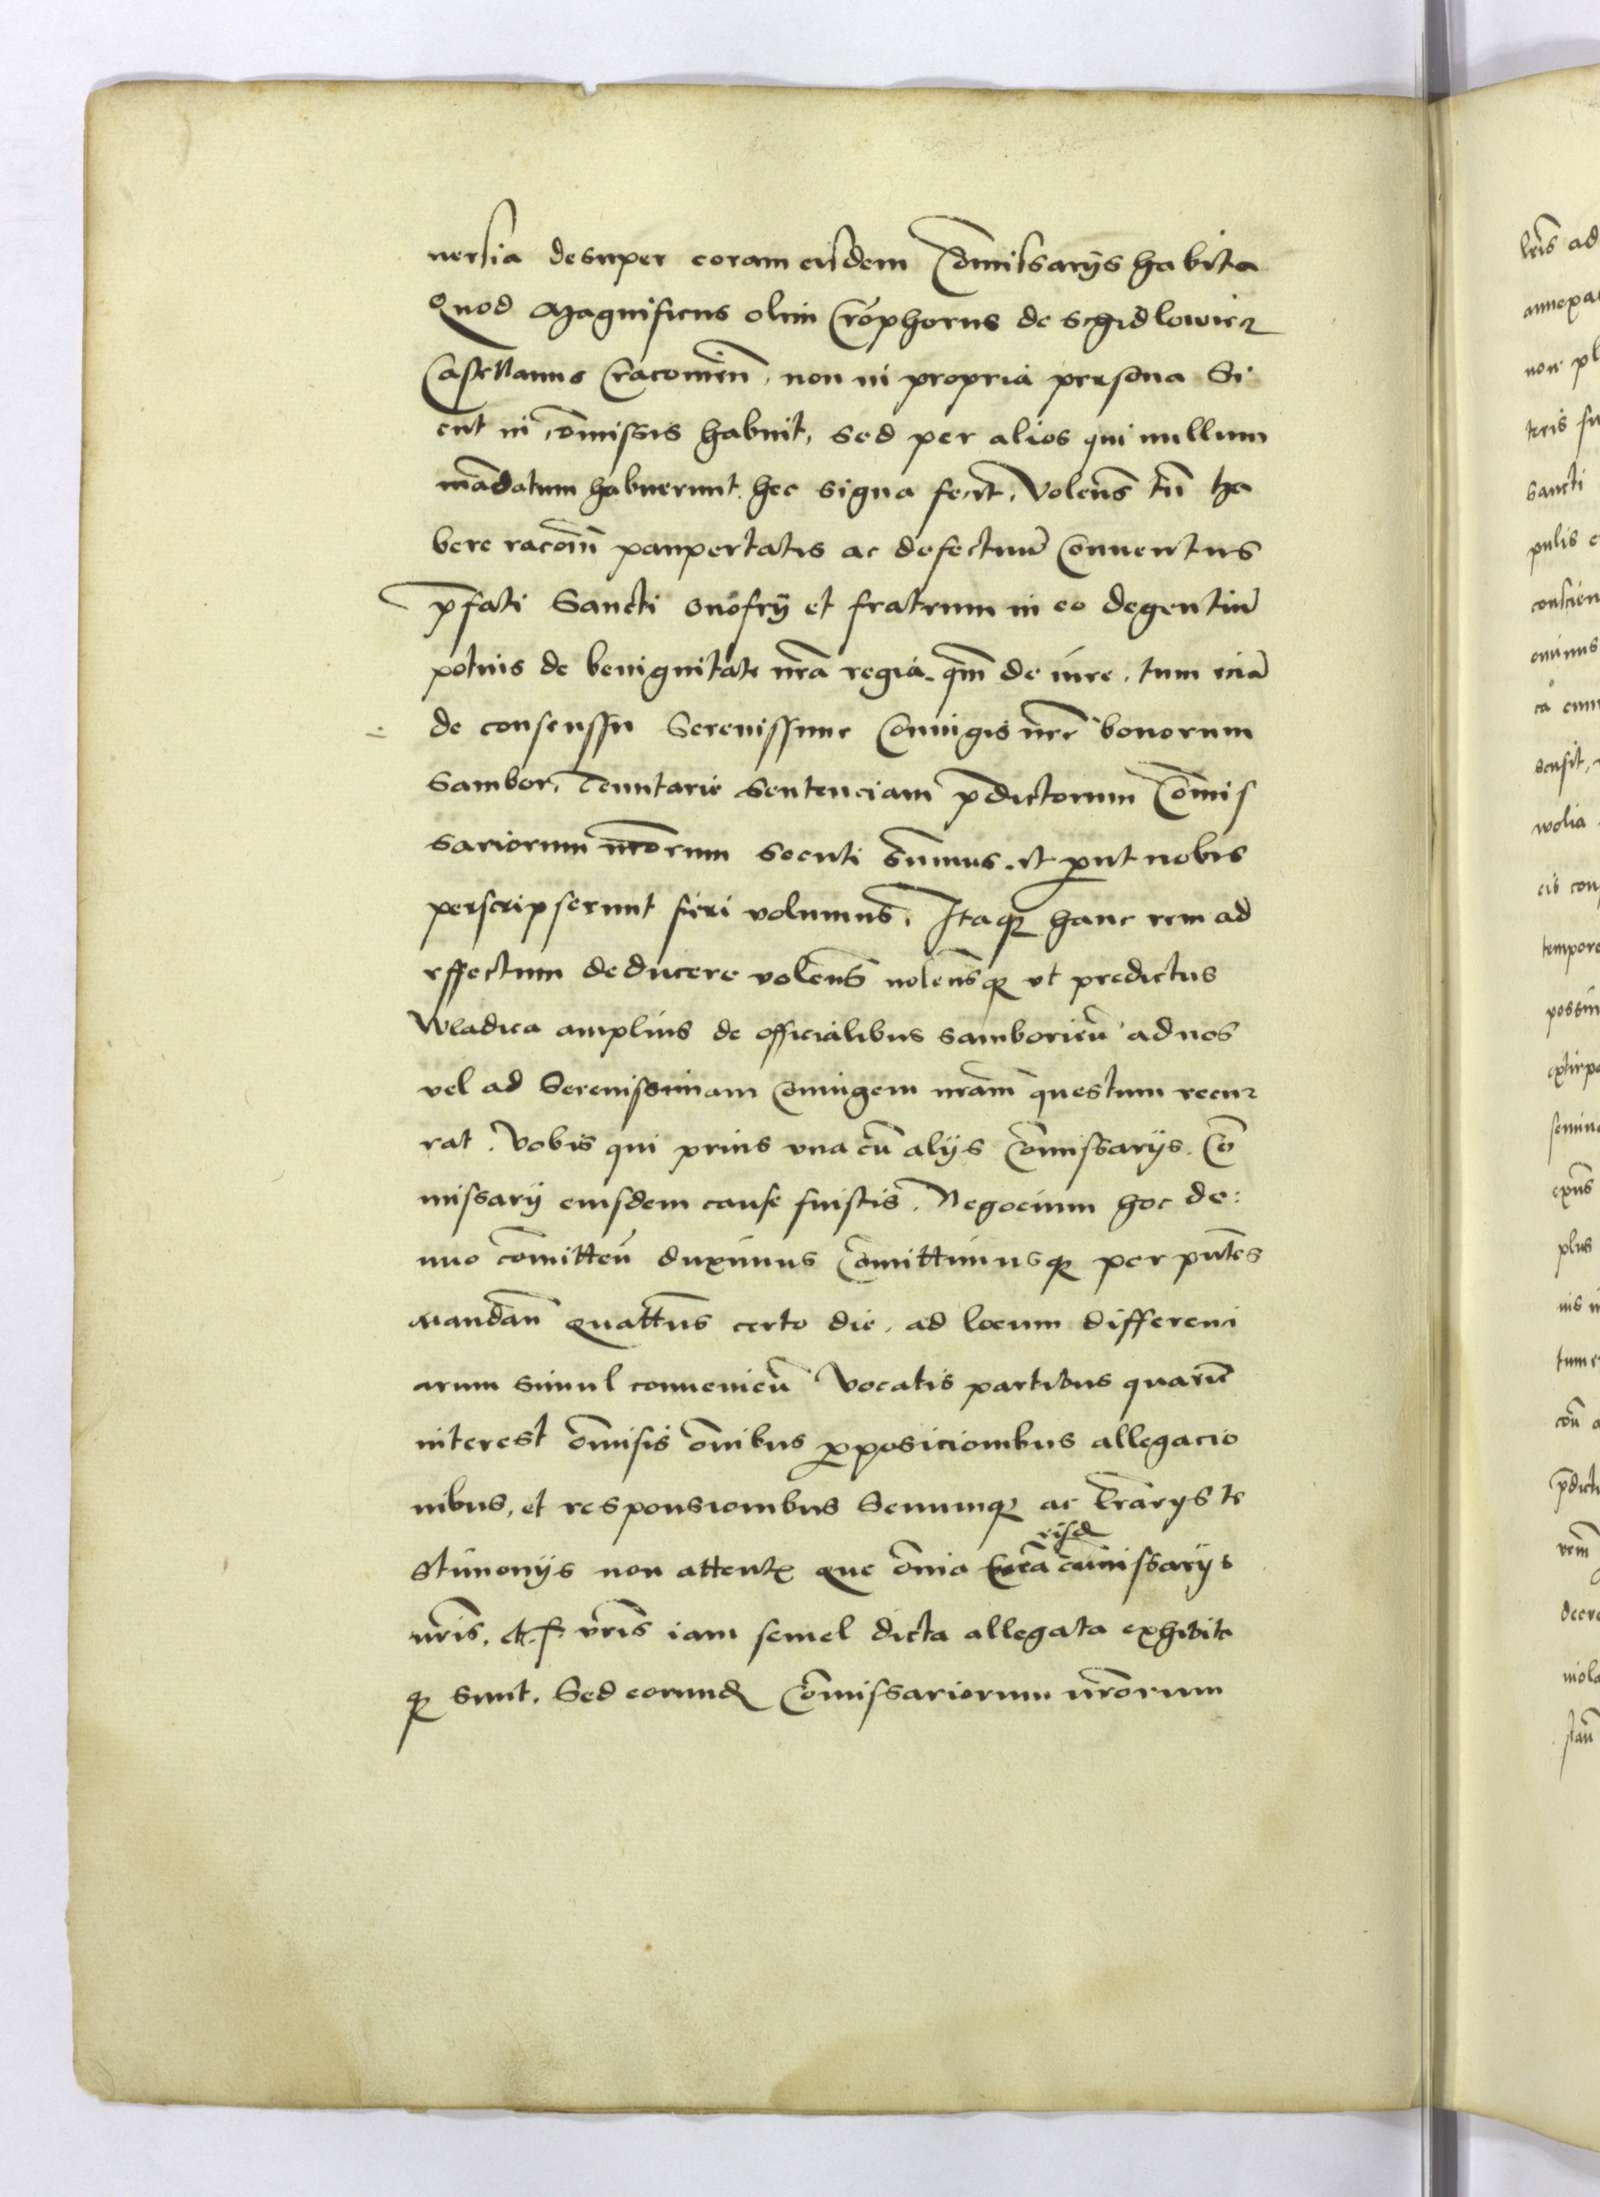 uersia desuper coram eisdem Cõmissarÿs habita
Quod Magnificus olim Cr̃ophorus de Schidlowicz
Castellanus Cracouień. non in propria presona Si
cut in cõmissis habuit, sed per alios qui nullum
mãdatum habuerunt hec signa fecĩt. Volen̄s tn̄ ha
bere racoem̄ paupertatis ac defectuũ Conuentus
p̄fati Sancti Onofrÿ et fratrum in eo degentiũ
potius de benignitate nr̃a regia. qm̃ de iure. tum eciã
de consenssu Serenissime Coniugis nr̃e bonorum
Sambor. Tenutarie Sentenciam p̄dictorum Cõmis
sariorum nr̃orum secuti sumus. et put nobis
perscripserunt fieri volumus. Itaq₃ hanc rem ad
effectum deducere volen̄s nolen̄sq₃ vt predictus
Wladica amplius de officialibus Samborień ad nos
vel ad Serenissimam Coniugem nr̃am questum recur
rat. Vobis qui prius vna cũ alÿs Cõmissarÿs. Cõ
missarÿ eiusdem cause fuistis. Negocium hoc de:
nuo cõmitteń duximus Cõmittimusq₃ per pn̄tes
Mandań quattn̄s certo die. ad locum differenci
arum simul conuenień Vocatis partibus quarũ
interest õmisis õnibus p̱posicionibus allegacio
nibus, et responsionibus Scriuimq₃ ac te
stimonÿs non attentꝭ que õnia corã eisd̃ cõmissarÿs
nr̃is. et f. vr̃is iam semel dicta allegata exhibita
q₃ sunt. Sed eorund̃ Cõmissariorum nr̃orum
lr̃is ad
annexa
non pl
teris fu
Sancti
pulis
conscien
omnus
sensit,
wolia
eis con
tempore
possin
extirpa
plus
p̄dict
decre
viola